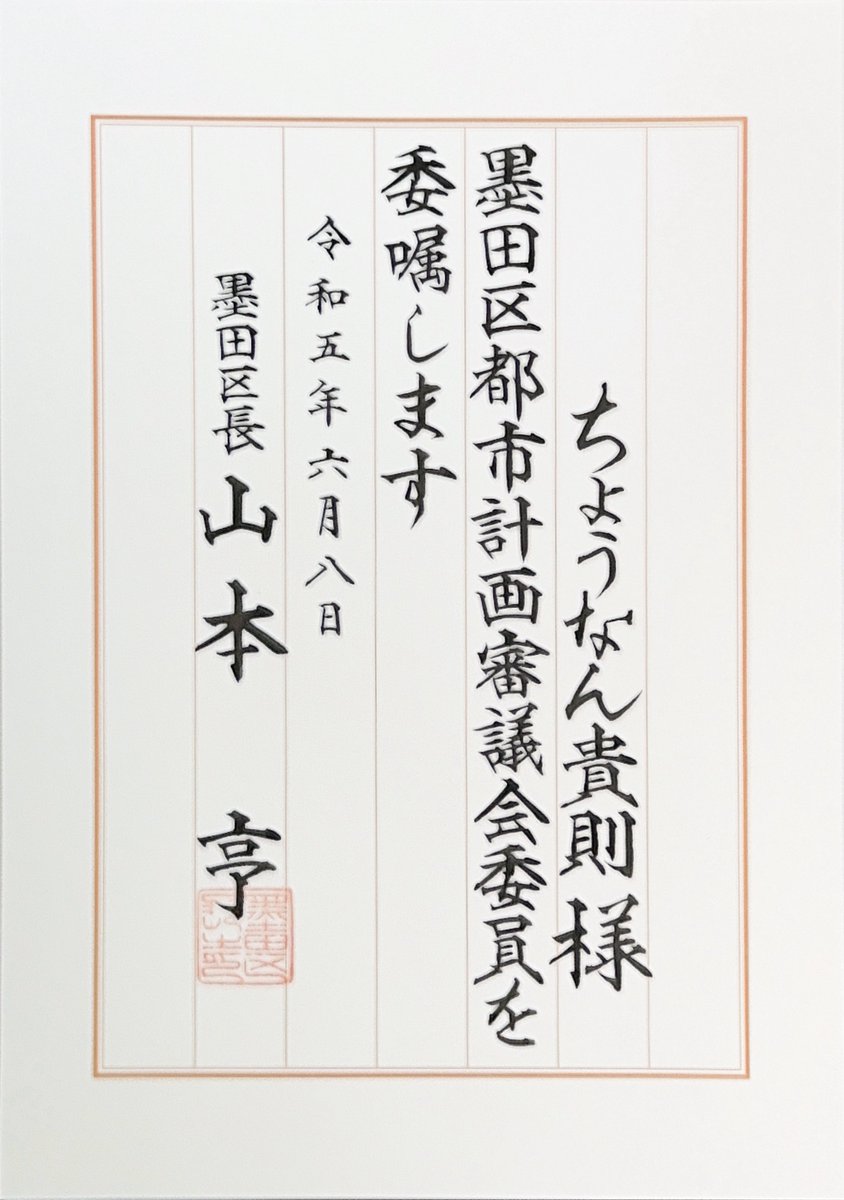 ちょうなん貴則様
墨田区都市計画審議会委員を
委嘱します
令和五年六月八日
墨田区長 山本 亨